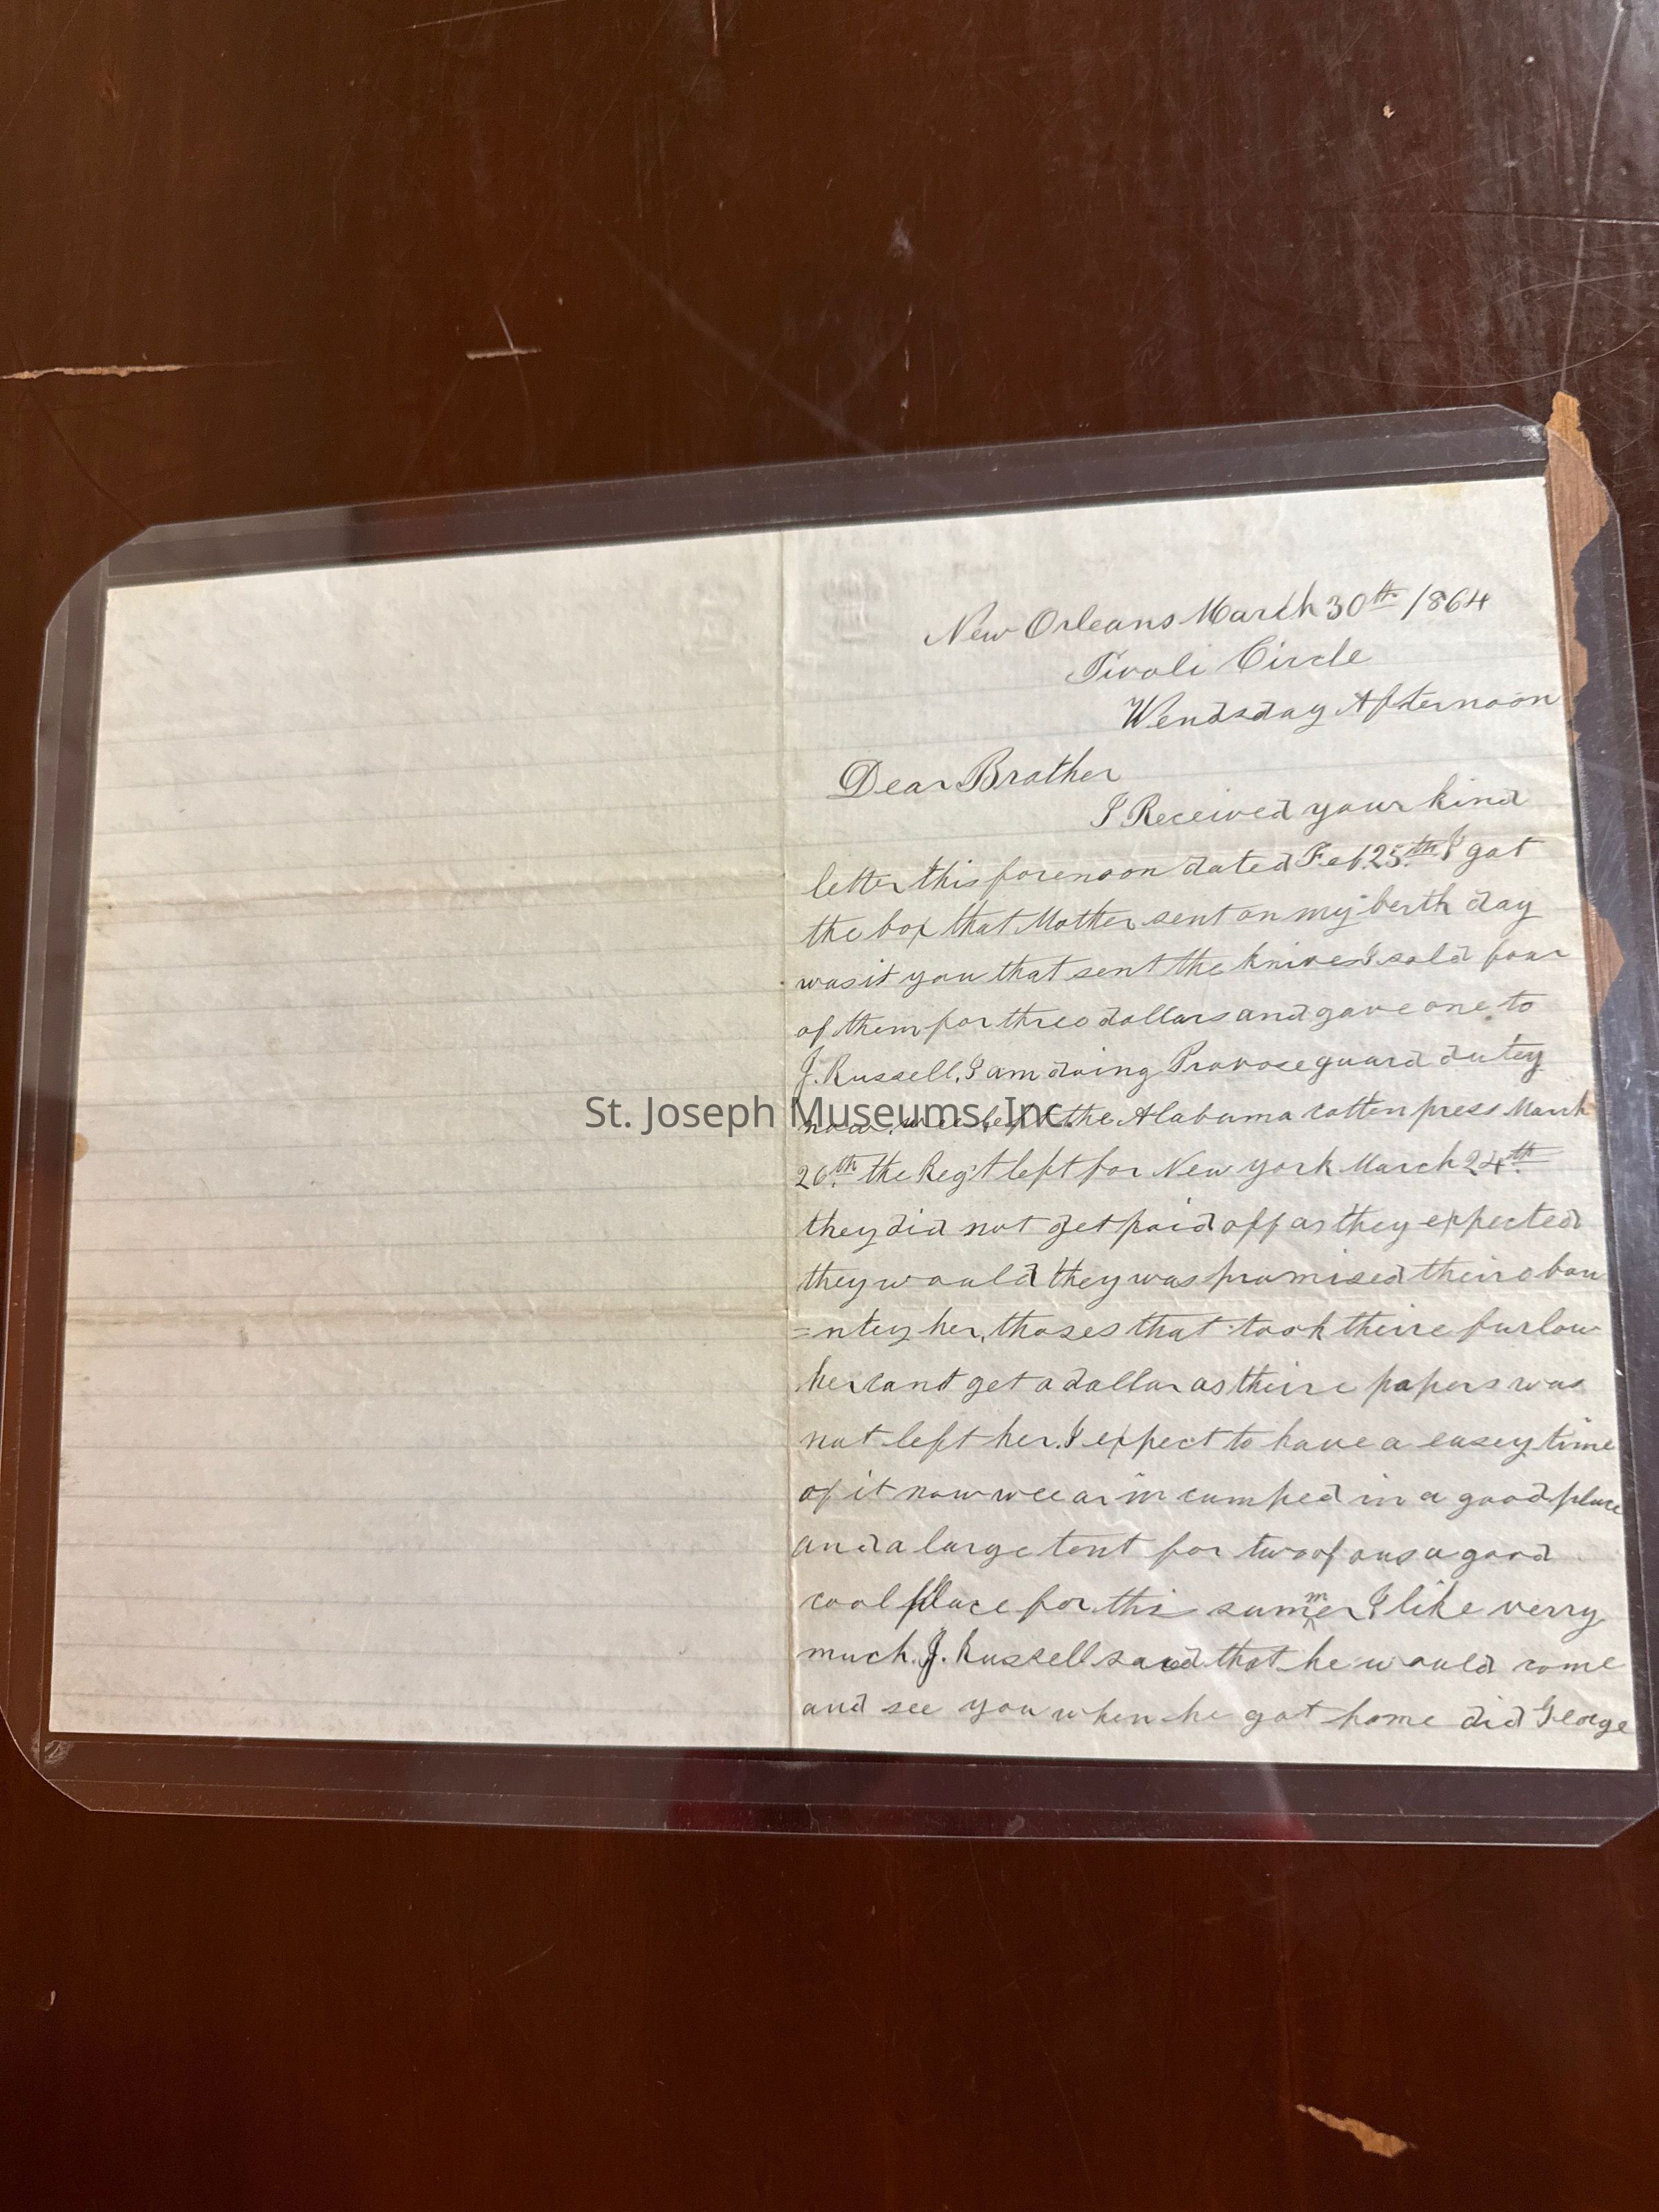 New Orleans March 30th /864
Tivoli Circle
Wendsday Afternoon
Dear Brother
I Received your kind
letter this forenoon dated Feb 25.th I got
the box that Mother sent on my berth day
was it you that sent the knives I sold four
of them for three dollars and gave one to
J. Russell. I am doing Provose guard dutey
now. wee left the Alabama cotten press March
20.th the Reg't left for New york March 24th.
they did not get paid off as they expected
they would they was promised theire bou
=ntey her, thoses that took theire furlow
her cant get a dollar as theire papers was
not left her. I expect to have a easey time
of it now wee ar in camped in a good place
and a large tent for two of ous a good
cool place for this summer I like verry
much. J. Russell said that he would come
and see you when he got home did George
St. Joseph Museums, Inc.